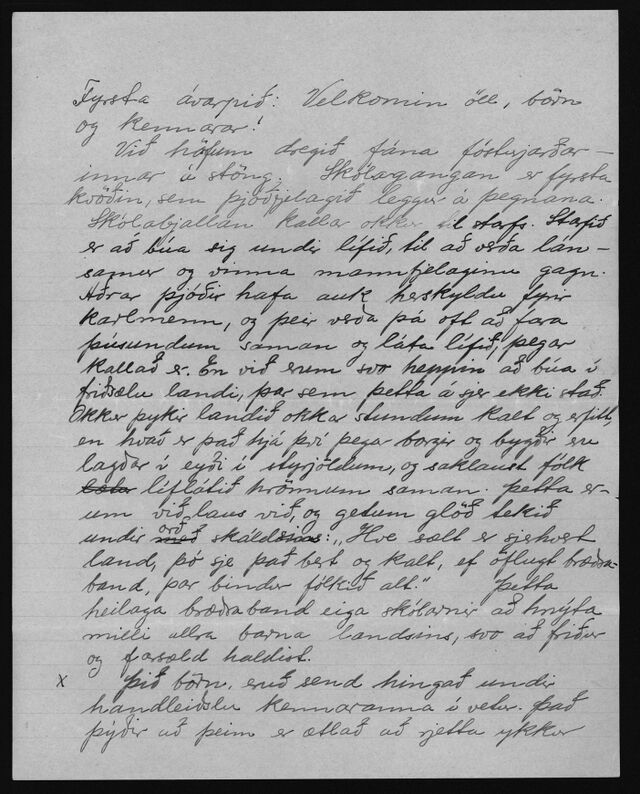 Fyrsta ávarpið: Velkomin öll, börn
og kennarar!
Við höfum dregið fána fósturjarðar-
innar í stöng. Skólagangan er fyrsta
kvöðin, sem þjóðfjelagið leggur á þegnana.
Skólabjallan kallar okkur til starfs. Starfið
er að búa sig undir lífið, til að verða lán-
samur og vinna mannfjelaginu gagn.
Aðrar þjóðir hafa auk herskyldu fyrir
karlmenn, og þeir verða þá oft að fara
þúsundum saman og láta lífið, þegar
kallað er. En við erum svo heppin að búa í
friðsælu landi, þar sem þetta á sjer ekki stað.
Okkur þykir landið okkar stundum kalt og erfitt,
en hvað er það hjá því þegar borgir og bygðir eru
lagðar í eyði í styrjöldum, og saklaust fólk
líflátið hrönnum saman. Þetta er-
um við laus við, og getum glöð tekið
undir með orð skáldsins: „Hve sælt er sjehvert
land, þó sje það bert og kalt, ef öflugt bræðra-
band, þar bindur fólkið alt." Þetta
heilaga bræðraband eiga skólarnir að hnýta
milli allra barna landsins, svo að friður
og farsæld haldist.
x Þið börn, eruð send hingað undir
handleiðslu kennaranna í vetur. Það
þýðir að þeim er ætlað að rjetta ykkur